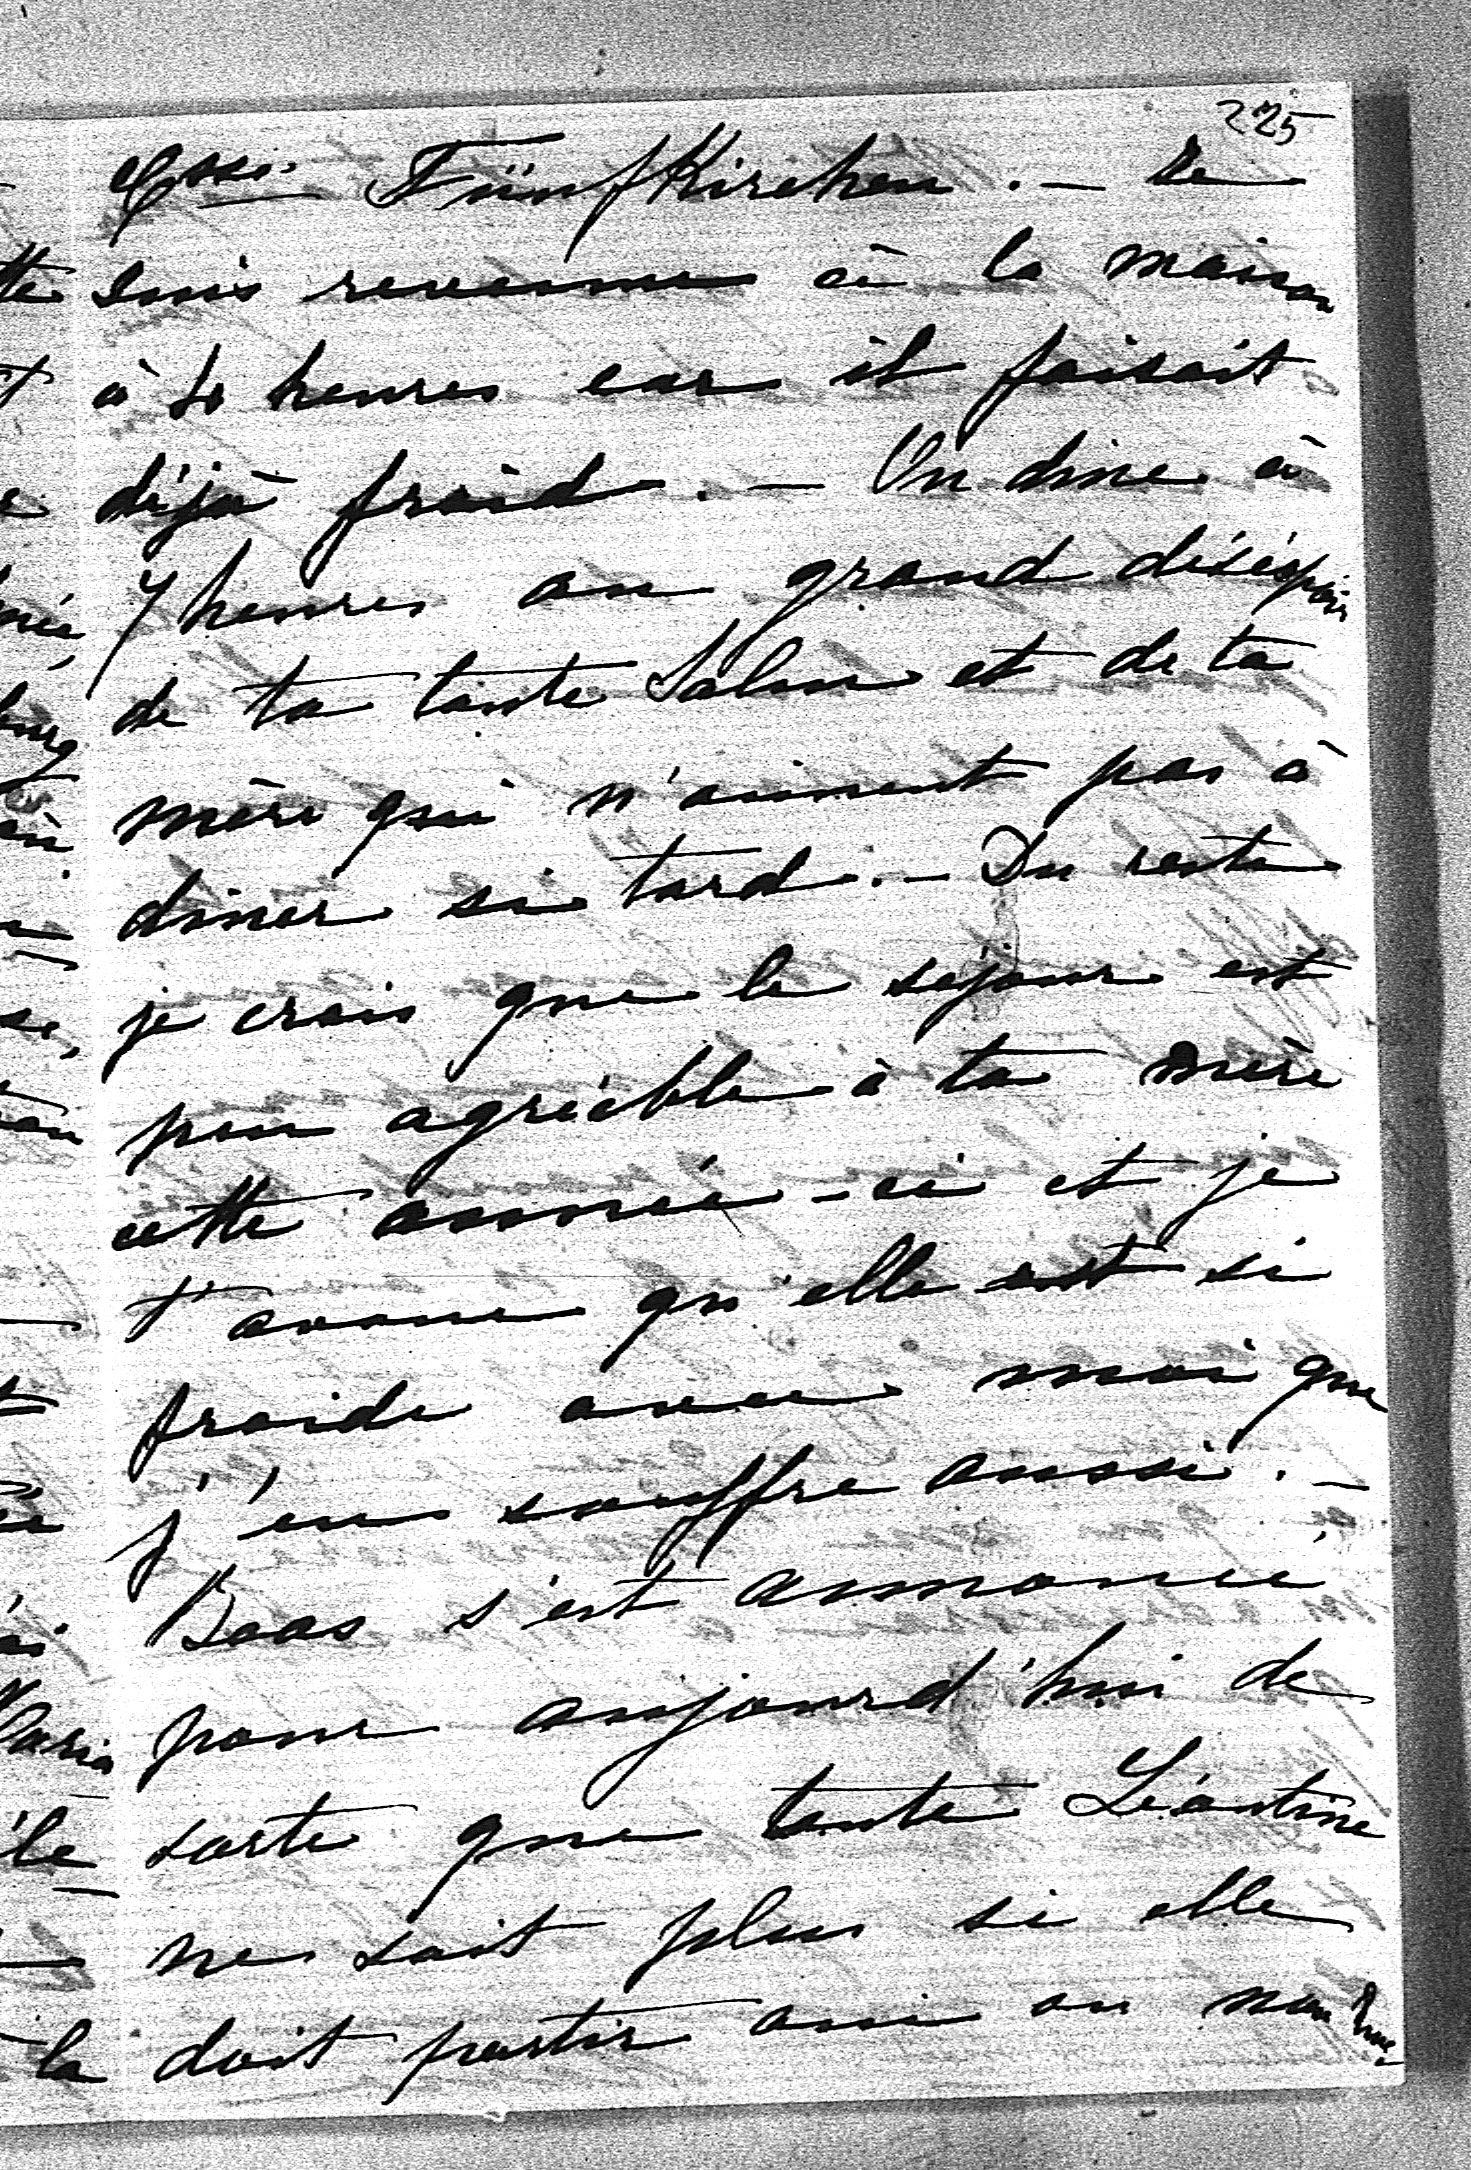 225
Csse. Fünfkirchen. — Je
suis revenue à la maison
à 4 heures car il faisait
déjà froid. — On dine à
7 heures au grand désespoir
de ta tante Salm et de ta
mère qui n'aiment pas à
diner si tard. — Du reste
je crois que le séjour est
peu agréable à ta mère
cette année-ci et je
t'avoue qu'elle est si
froide avec moi que
j'en souffre aussi. —
Baas s'est annoncé
pour aujourd'hui de
sorte que tante Léontine
ne sait plus si elle
doit partir oui ou non